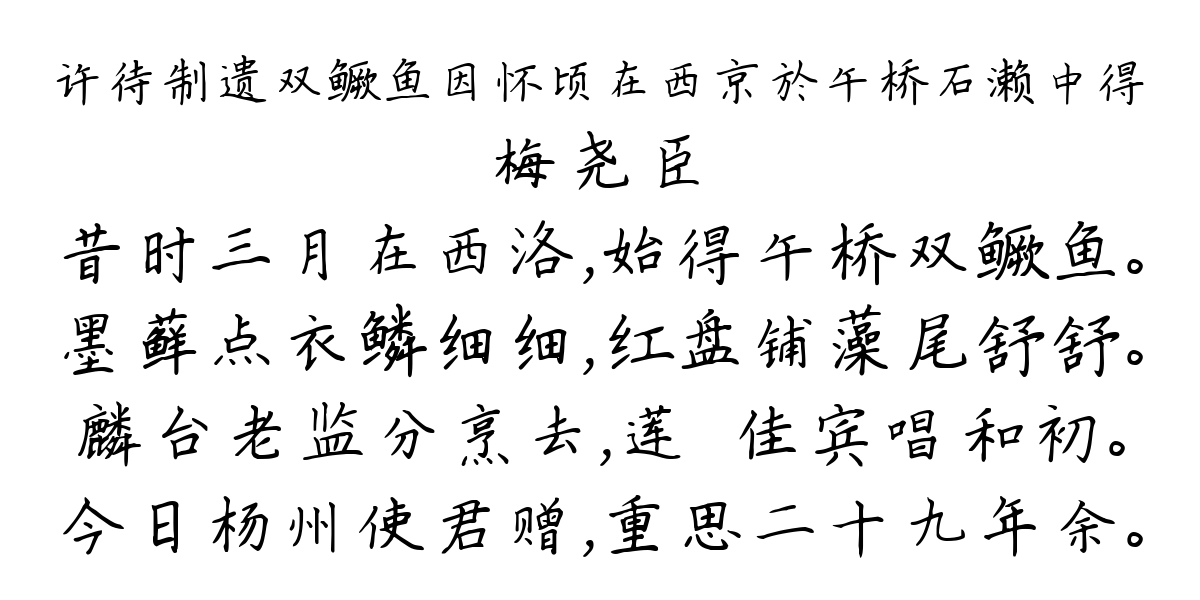 许待制遗双鳜鱼因怀顷在西京於午桥石濑中得
梅尧臣
昔时三月在西洛,始得午桥双鳜鱼。
墨藓点衣鳞细细,红盘铺藻尾舒舒。
麟台老监分烹去,莲 佳宾唱和初。
今日杨州使君赠,重思二十九年余。